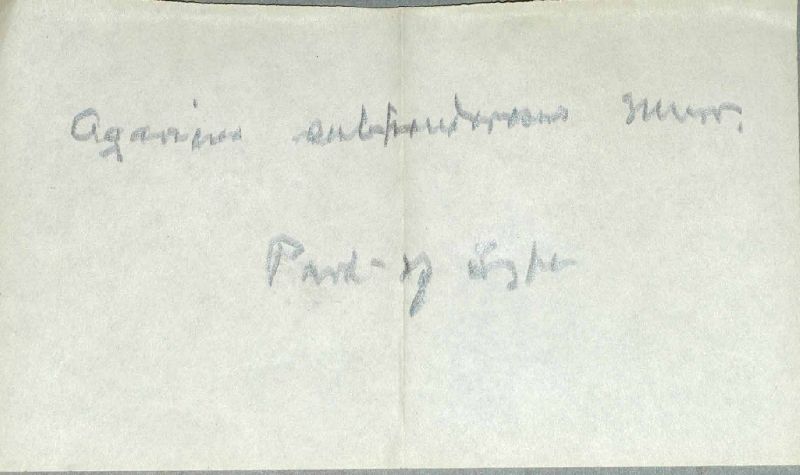 Agaricus subponderosus Murr.
Part of type